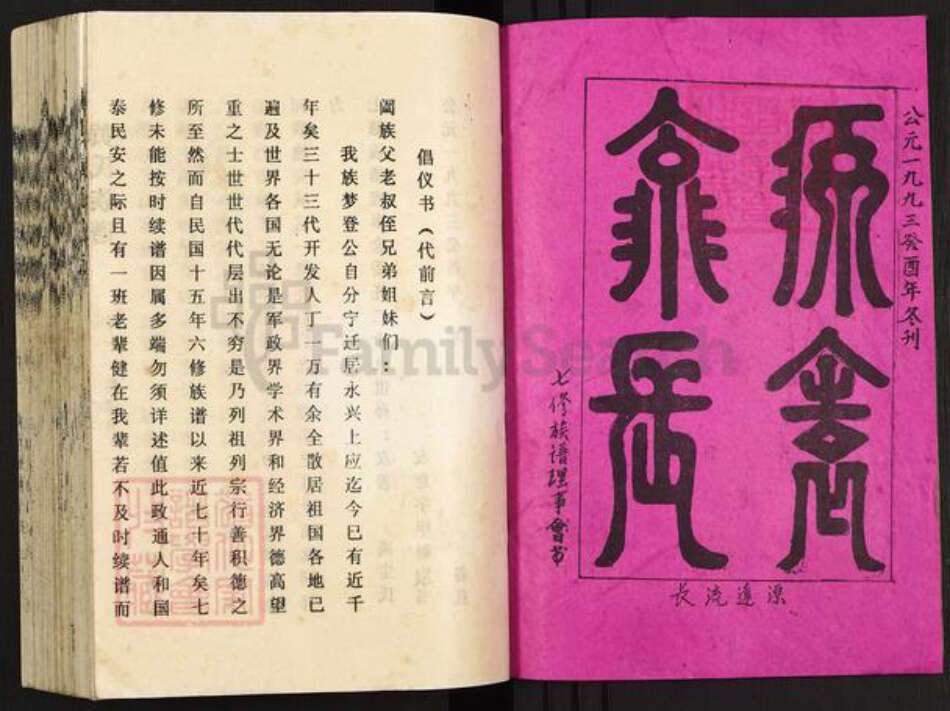 公元一九九三癸酉年冬刊
源远流长
七修族谱理事會书
长流遠源
倡仪书（代前言）
阖族父老叔侄兄弟姐妹们：
我族梦登公自分宁迁居永兴上应迄今已有近千
年矣三十三代开发人丁一万有余全散居祖国各地已
遍及世界各国无论是军政界学术界和经济界德高望
重之士世世代代层出不穷是乃列祖列宗行善积德之
所至然而自民国十五年六修族谱以来近七十年矣七
修未能按时续谱因属多端勿须详述值此政通人和国
泰民安之际且有一班老辈健在我辈若不及时续谱而
FamilySearch